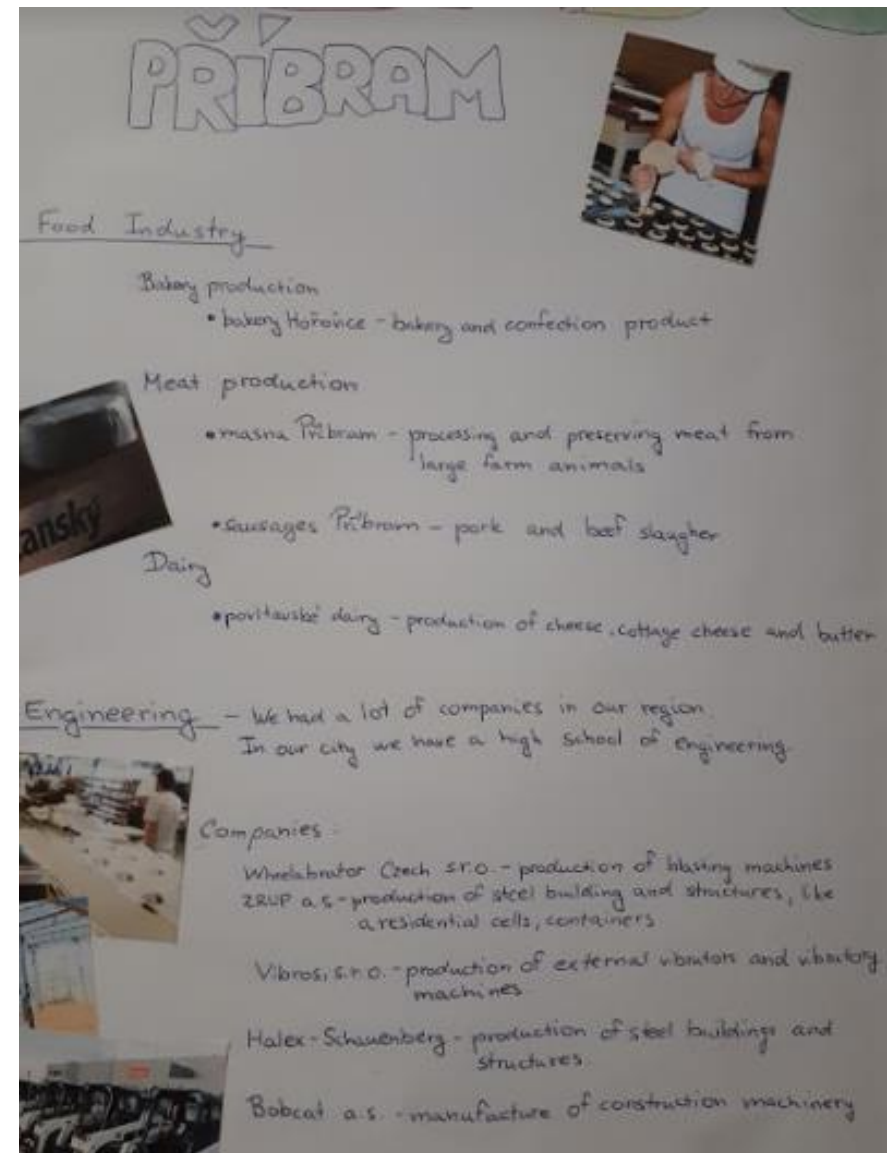 PŘÍBRAM
Food Industry
Bakery production
• bakery Hořovice - bakery and confection product
Meat production
• masna Příbram - processing and preserving meat from
large farm animals
anský
• sausages Příbram - pork and beef slaugher
Dairy
• povltavské dairy - production of cheese, cottage cheese and butter
Engineering - We had a lot of companies in our region.
In our city we have a high school of engineering.
Companies:
Wheelabrator Czech s.r.o. - production of blasting machines
ZRUP a.s - production of steel building and structures, like
a residential cells, containers
Vibros, s.r.o. - production of external vibrators and vibratory
machines
Halex - Schauenberg - production of steel buildings and
structures
Bobcat a.s. - manufacture of construction machinery